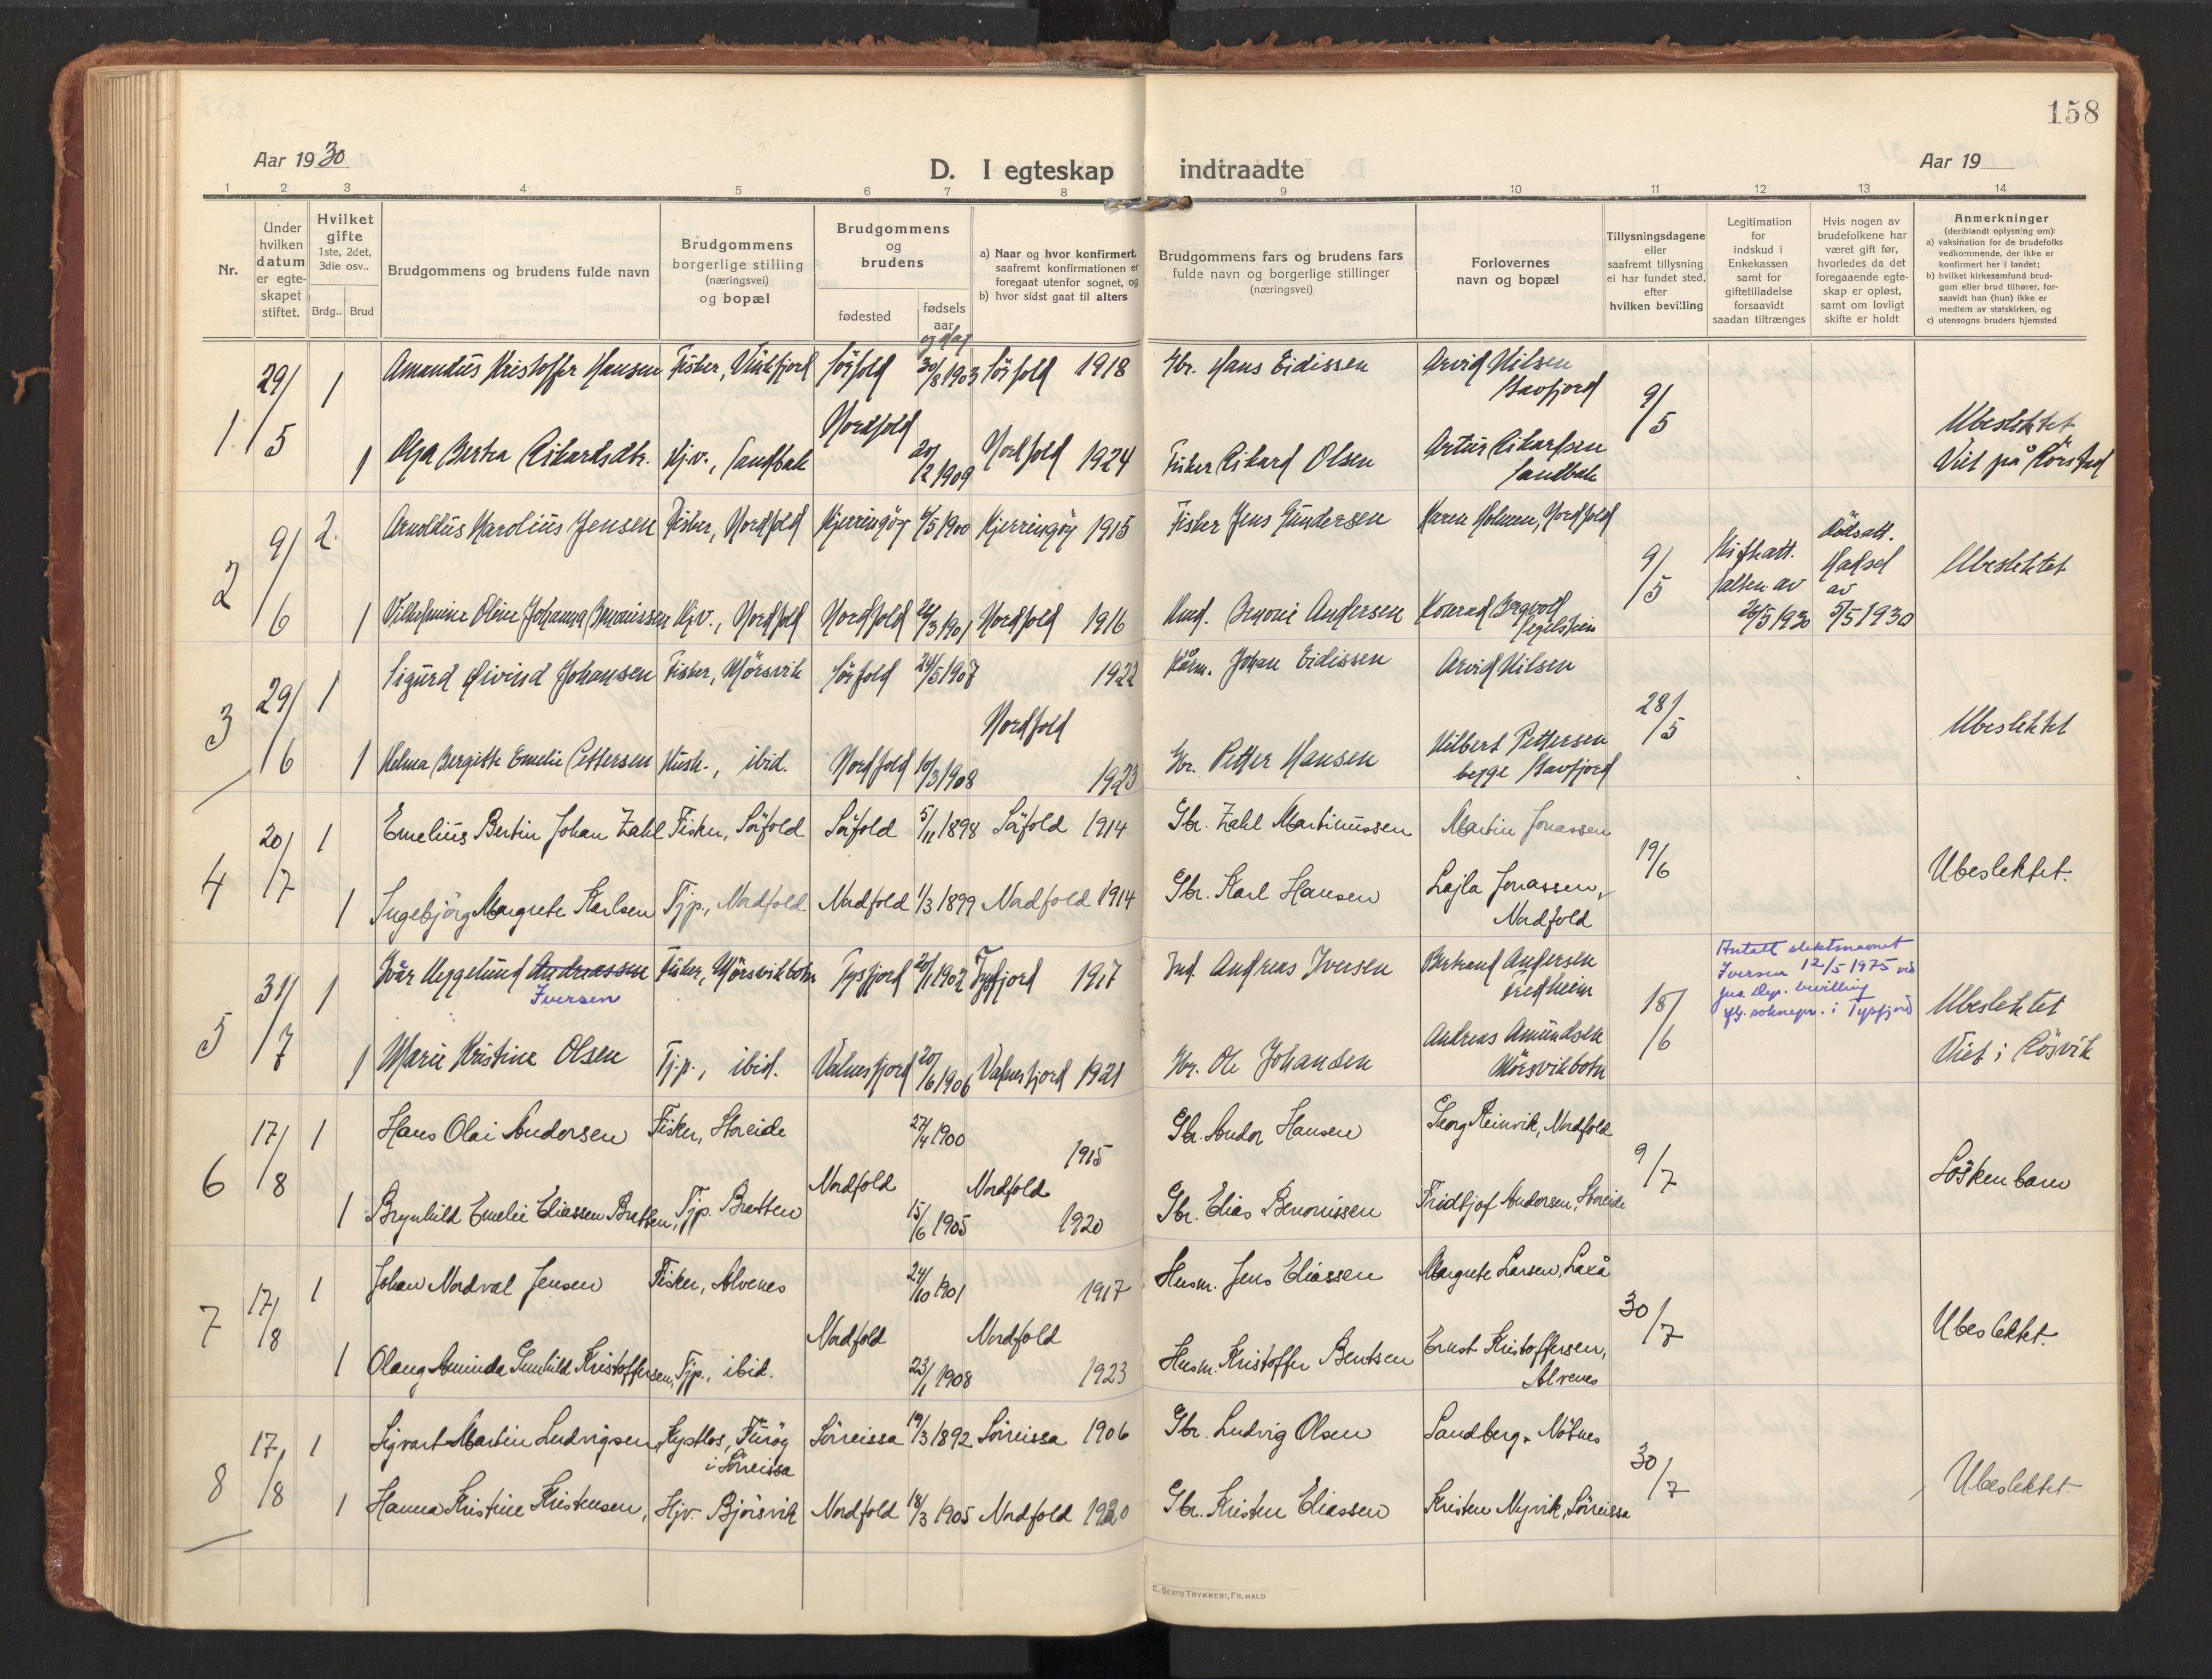 158
Aar 1930
D. I egteskap indtraadte
Aar 19
1 2 3 4 5 6 7 8 9 10 11 12 13 14
Nr.
Under hvilken datum er egteskapet stiftet.
Hvilket gifte 1ste, 2det, 3die osv..
Brdg.. Brud
Brudgommens og brudens fulde navn
Brudgommens borgerlige stilling (næringsvei) og bopæl
Brudgommens og brudens
fødested
fødsels aar og dag
a) Naar og hvor konfirmert, saafremt konfirmationen er foregaat utenfor sognet, og
b) hvor sidst gaat til alters
Brudgommens fars og brudens fars fulde navn og borgerlige stillinger (næringsvei)
Forlovernes navn og bopæl
Tillysningsdagene eller saafremt tillysning ei har fundet sted, efter hvilken bevilling
Legitimation for indskud i Enkekassen samt for giftetilladelse forsaavidt saadan tiltrænges
Hvis nogen av brudefolkene har været gift før, hvorledes da det foregaaende egteskap er opløst, samt om lovligt skifte er holdt
Anmerkninger (deriblandt oplysning om):
a) vaksination for de brudefolks vedkommende, der ikke er konfirmert her i landet;
b) hvilket kirkesamfund brudgom eller brud tilhører, forsaavidt han (hun) ikke er medlem av statskirken, og
c) utensogns bruders hjemsted
1. 29/5 1 Amandus Kristoffer Hansen Fisker, Vinkfjord Sörfold 30/8 1903 Sörfold 1918 Gbr. Hans Eidissen Arvid Nilsen Stavfjord 9/5
1 Olga Bertea Rikardsdtr. Hj.v., Sandbak Nordfold 20/2 1909 Nordfold 1924 Fisker Rikard Olsen Artur Rikardsen Sandbak Ubeslektet Viet på Rörstad
2 9/6 2. Arnoldus Karolius Jensen Fisker, Nordfold Kjerringöy 6/5 1900 Kjerringöy 1915 Fisker Jens Gundersen Karen Holmen, Nordfold 9/5 Skifteatt. Salten av 26/5 1930 Dödsatt. Hadsel av 5/5 1930 Ubeslektet
1 Vilhelmine Oline Johanna Benonissen Hj.v., Nordfold Nordfold 24/3 1901 Nordfold 1916 Benoni Andersen Konrad Bergvold
3 29/6 1 Sigurd Øivind Johansen Fisker, Mörsvik Sörfold 24/5 1907 1922 Kårm. Johan Eidissen Arvid Nilsen 28/5
1 Helma Bergitte Emelie Pettersen Hush., ibid. Nordfold 10/3 1908 Nordfold 1923 Gbr. Petter Hansen Hilbert Pettersen begge Stavfjord Ubeslektet
4 20/7 1 Emelius Bertin Johan Zahl Fisker, Sörfold Sörfold 5/11 1898 Sörfold 1914 Gbr. Zahl Martinussen Martin Jonassen 19/6
1 Ingebjörg Margrete Karlsen Tjp., Nordfold Nordfold 1/3 1899 Nordfold 1914 Gbr. Karl Hansen Lajla Jonassen, Nordfold Ubeslektet.
5 31/7 1 Ivår Heggelund Andreassen Iversen Fisker, Mörsvikbotn Tysfjord 20/1 1902 Tysfjord 1917 Ind. Andreas Iversen Bertrand Andersen Fredheim 18/6 Antatt slektsnavnet Iversen 12/5 1975 ved Jus. Dep. bevilling flg. soknepr. i Tysfjord
1 Marie Kristine Olsen Tj.p., ibid. Valnesfjord 20/6 1906 Valnesfjord 1921 Gbr. Ole Johansen Andreas Amundsen Mörsvikbotn Ubeslektet Viet i Rösvik
6 17/8 1 Hans Olai Andersen Fisker, Storeide 27/4 1900 1915 Gbr. Andor Hansen Georg Reinvik, Nordfold 9/7
1 Brynhild Emelie Eliassen Bratten, Tjp. Bratten Nordfold 15/6 1905 Nordfold 1920 Gbr. Elias Benonissen Fridtjof Andersen, Storeide Söskenbarn
7 17/8 1 Johan Nordval Jensen Fisker, Alvenes 24/10 1901 1917 Husm. Jens Eliassen Margrete Larsen, Laxå 30/7
1 Olaug Aminda Gunhild Kristoffersen, Tjp., ibid. Nordfold 23/1 1908 Nordfold 1923 Husm. Kristoffer Bentsen Ernst Kristoffersen, Alvenes Ubeslektet.
8 17/8 1 Sigvart Martin Ludvigsen, Kystlos, Furöy i Sörreissa Sörreissa 19/3 1892 Sörreissa 1906 Gbr. Ludvig Olsen Sandberg 30/7
1 Hanna Kristine Kristensen, Hjv. Björsvik Nordfold 18/3 1905 Nordfold 1920 Gbr. Kristen Eliassen Kristen Nyvik, Sörreissa Ubeslektet
E. Sem's Trykkeri, Fr.hald